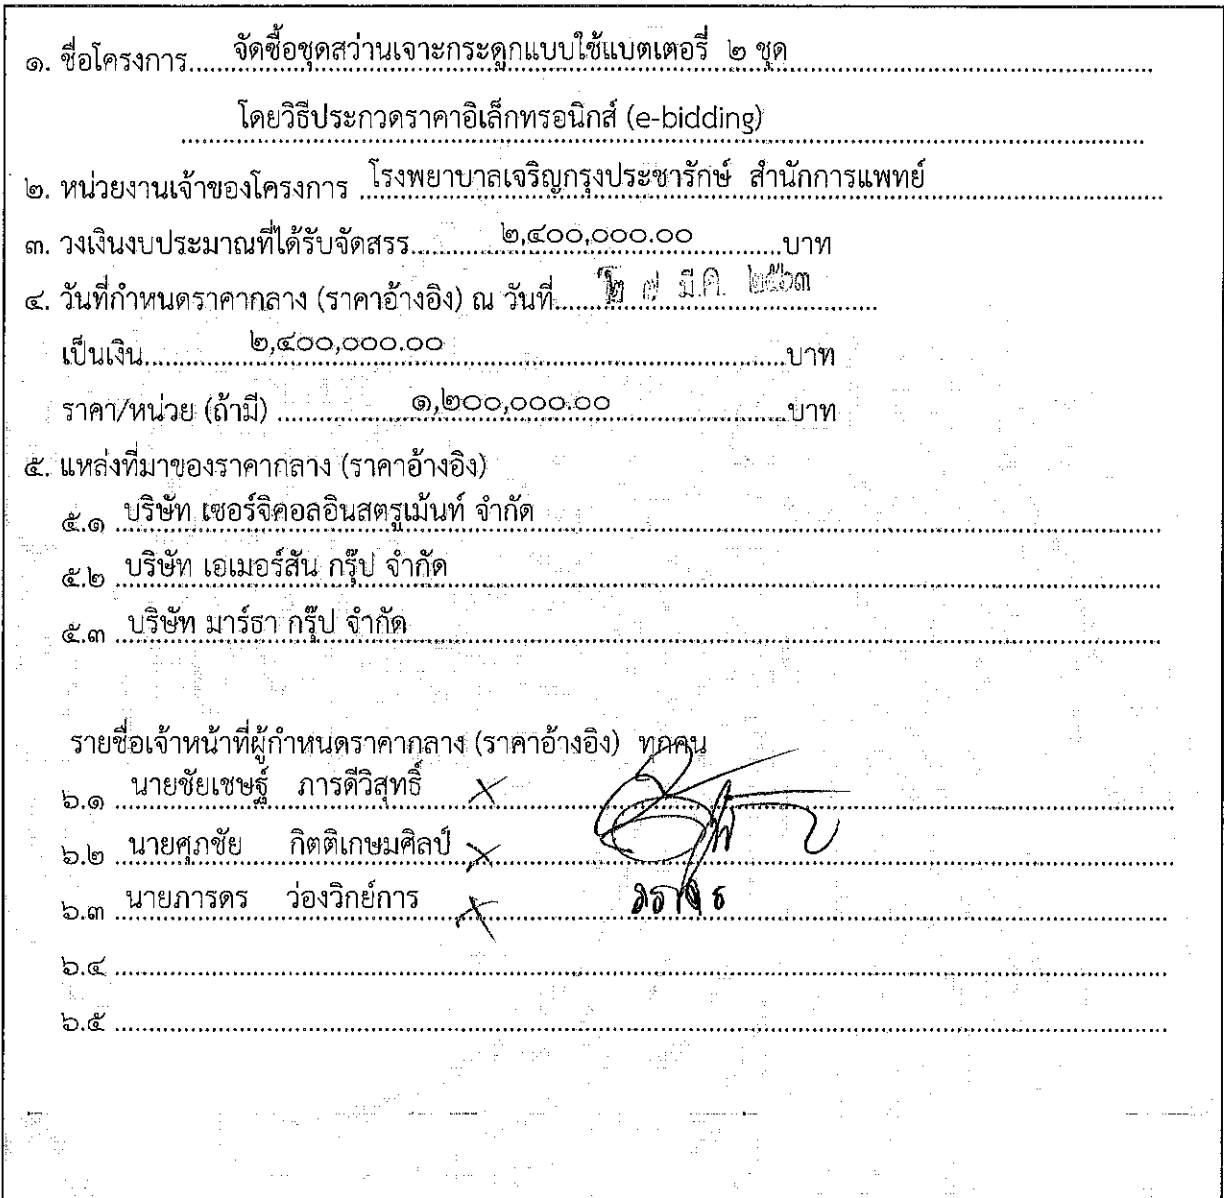 ๑. ชื่อโครงการ.....จัดซื้อชุดสว่านเจาะกระดูกแบบใช้แบตเตอรี่ ๒ ชุด
โดยวิธีประกวดราคาอิเล็กทรอนิกส์ (e-bidding)
๒. หน่วยงานเจ้าของโครงการ โรงพยาบาลเจริญกรุงประชารักษ์ สำนักการแพทย์
๓. วงเงินงบประมาณที่ได้รับจัดสรร.....๒,๔๐๐,๐๐๐.๐๐.....บาท
๔. วันที่กำหนดราคากลาง (ราคาอ้างอิง) ณ วันที่..... มี.ค. ๒๕๖๓
เป็นเงิน.....๒,๔๐๐,๐๐๐.๐๐.....บาท
ราคา/หน่วย (ถ้ามี) .....๑,๒๐๐,๐๐๐.๐๐.....บาท
๕. แหล่งที่มาของราคากลาง (ราคาอ้างอิง)
๕.๑ บริษัท เซอร์จิคอลอินสตรูเม้นท์ จำกัด
๕.๒ บริษัท เอเมอร์สัน กรุ๊ป จำกัด
๕.๓ บริษัท มาร์ธา กรุ๊ป จำกัด
รายชื่อเจ้าหน้าที่ผู้กำหนดราคากลาง (ราคาอ้างอิง) ทุกคน
๖.๑ นายชัยเชษฐ์ ภารดีวิสุทธิ์
๖.๒ นายศุภชัย กิตติเกษมศิลป์
๖.๓ นายภารดร ว่องวิกย์การ
๖.๔
๖.๕